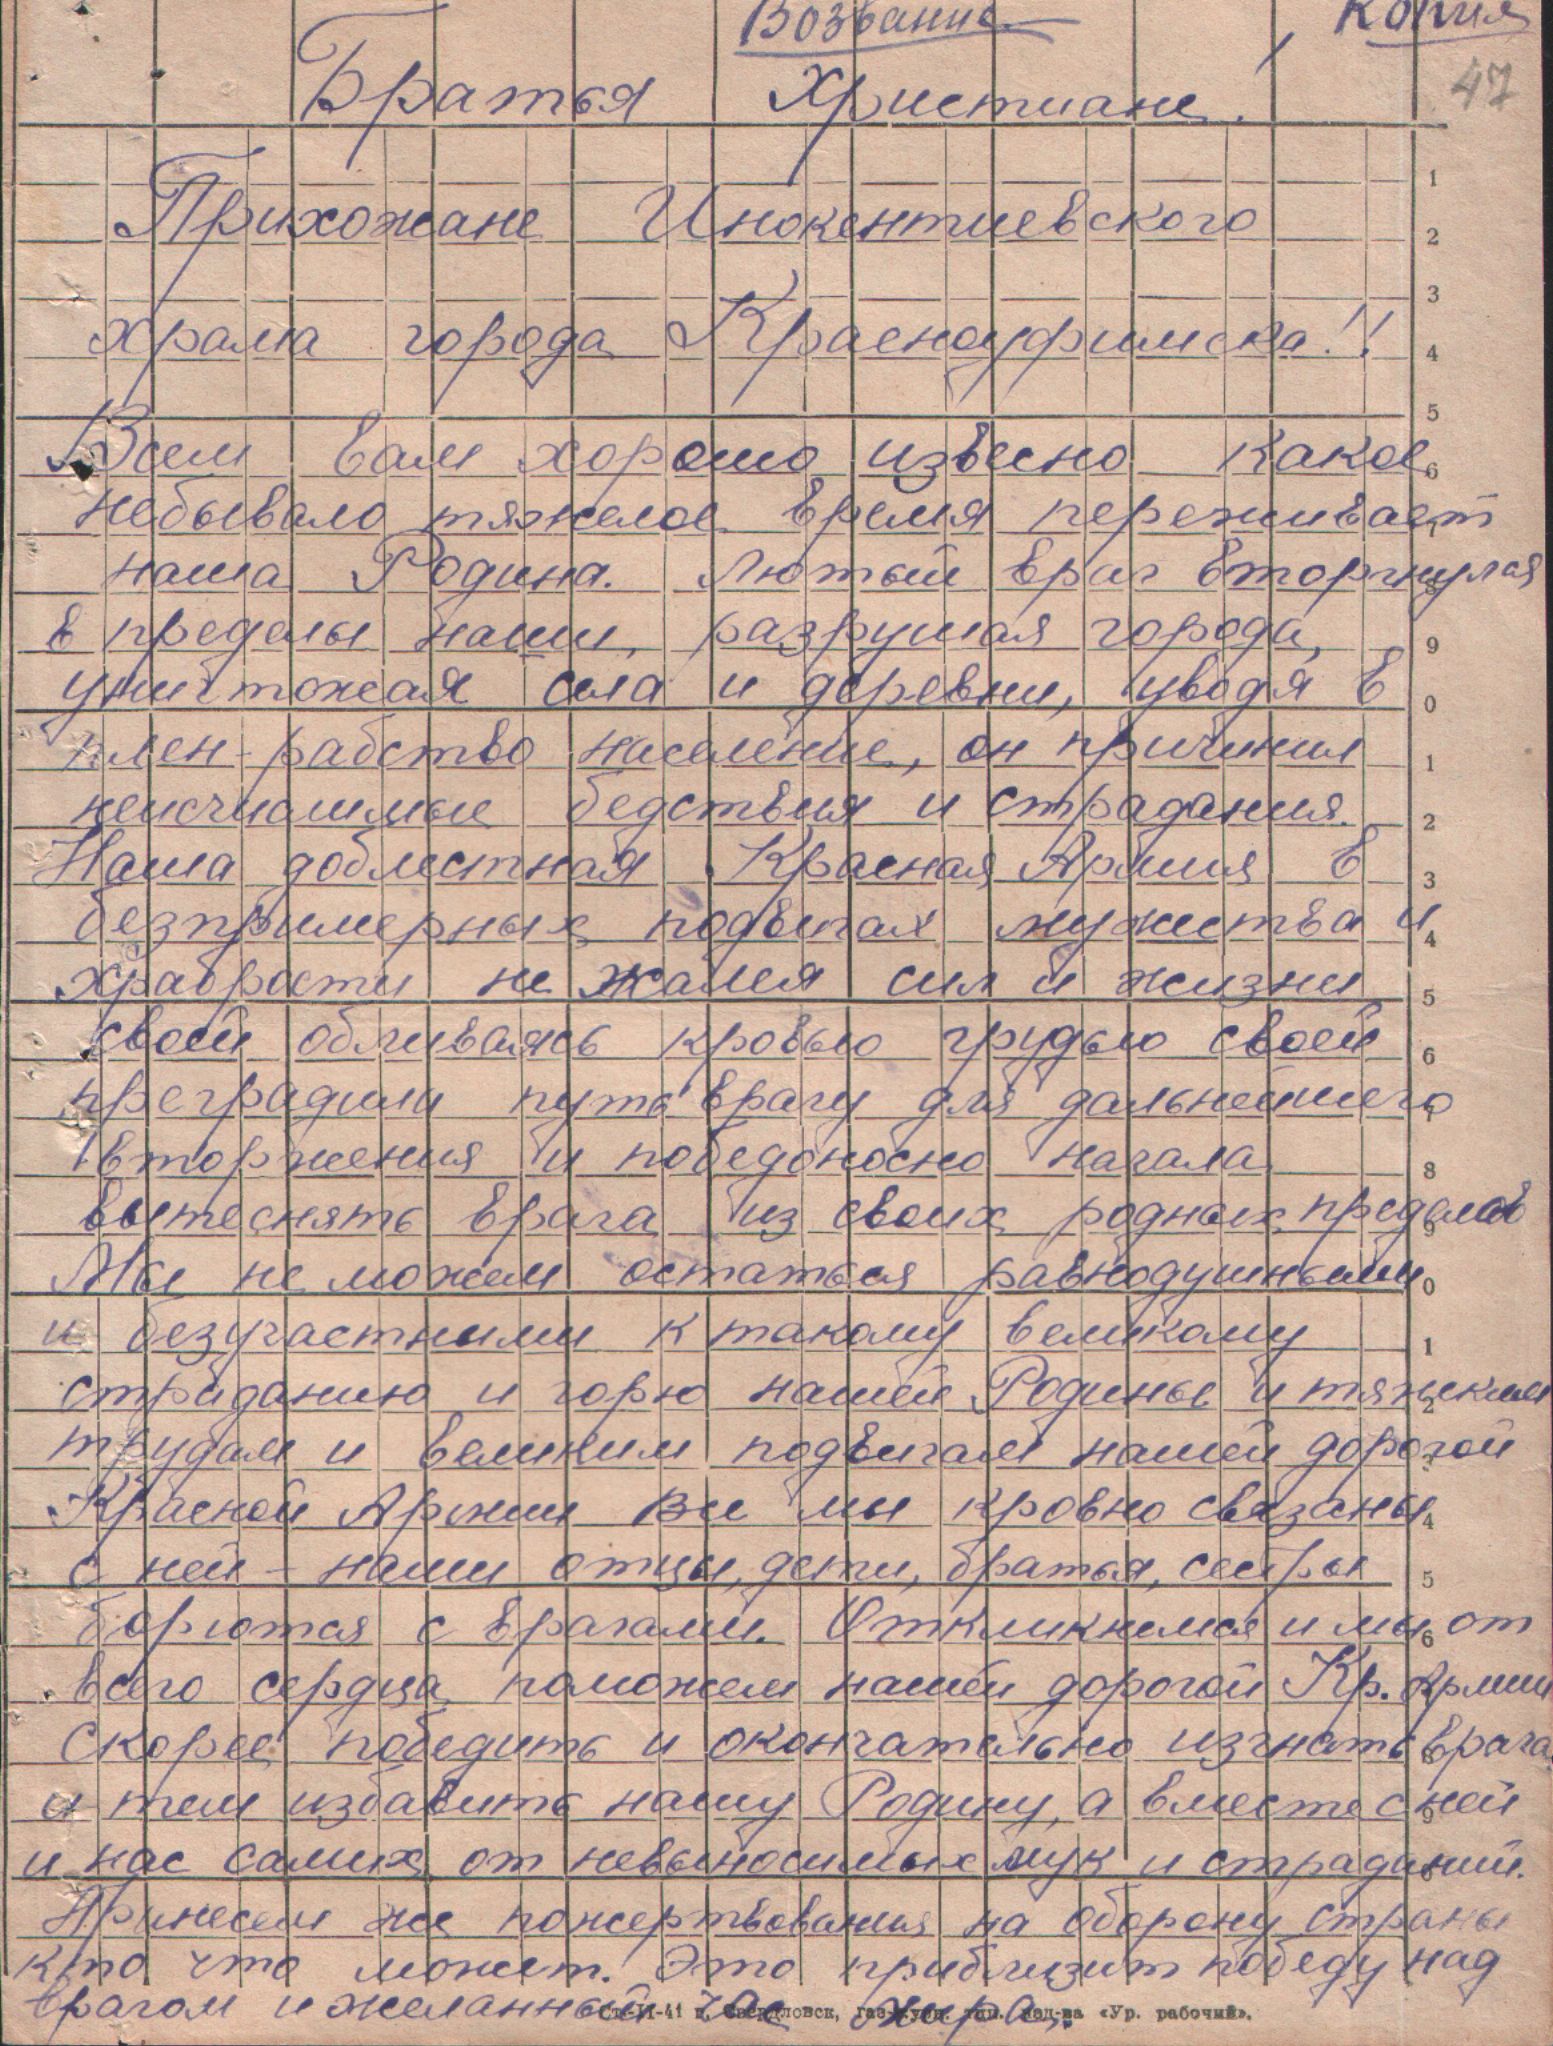 Воззвание. Копия
47
Братья Христиане.
Прихожане Инокентиевского
храма города Красноуфимска!!
Всем вам хорошо извесно какое
небывало тяжелое время переживает
наша Родина. Лютый враг вторгнулся
в пределы наши, разрушая города,
уничтожая села и деревни, уводя в
плен-рабство население, он причинил
неисчислимые бедствия и страдания.
Наша доблестная Красная Армия в
безпримерных подвигах мужества и
храбрости не жалея сил и жизни
своей обливаясь кровью грудью своей
преградили путь врагу для дальнейшего
вторжения и победоносно начала
вытеснять врага из своих родных пределов
Мы не можем остаться равнодушными
и безучастными к такому великому
страданию и горю нашей Родины и тяжким
трудам и великим подвигам нашей дорогой
Красной Армии Все мы кровно связаны
с ней - наши отцы, дети, братья, сестры
борются с врагами. Откликнемся и мы от
всего сердца поможем нашей дорогой Кр. Армии
скорее победить и окончательно изгнать врага
и тем избавить нашу Родину, а вместе с ней
и нас самих от невыносимых мук и страданий.
Принесем же пожертвования на оборону страны
кто что может. Это приблизит победу над
врагом и желанный час мира.
41 г. Свердловск, газ-журн. тип. изд-ва «Ур. рабочий».